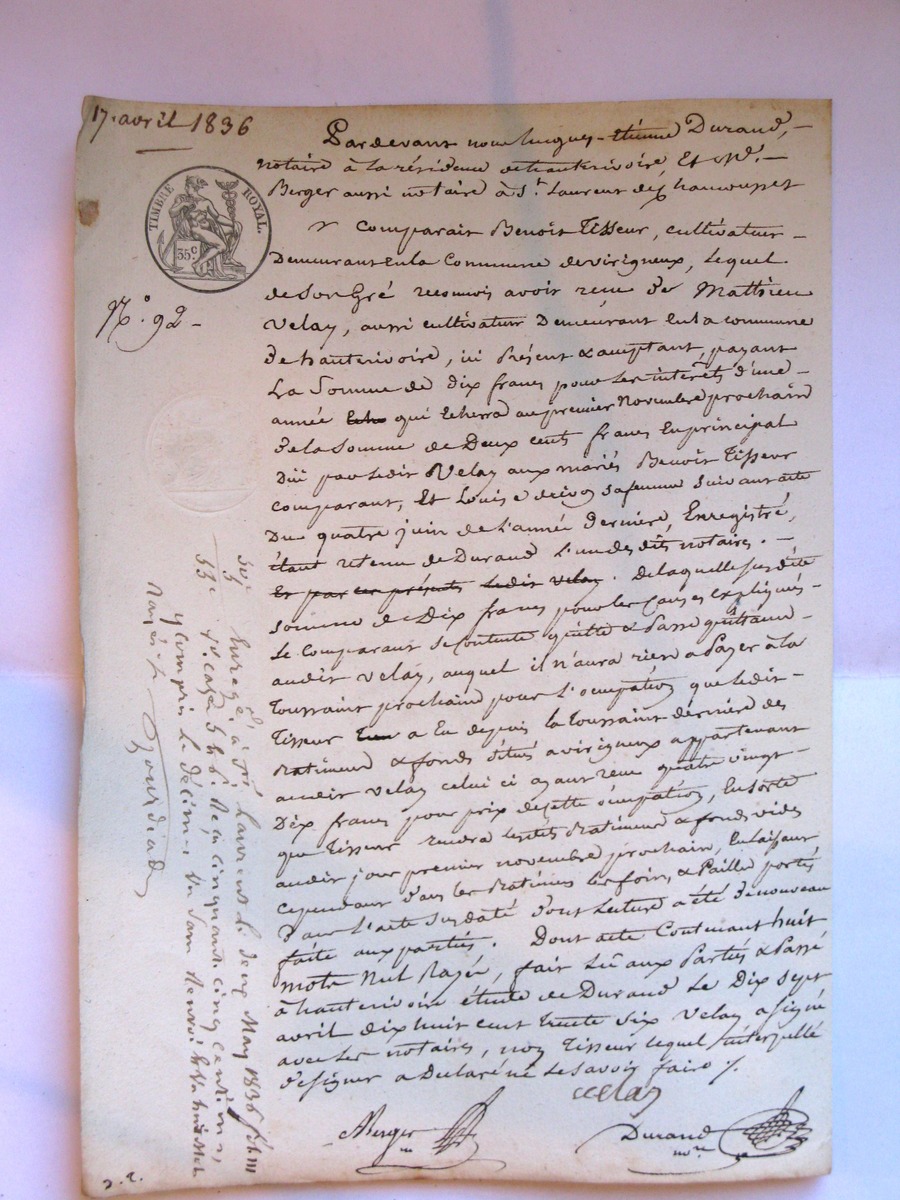 17. avril 1836
Pardevant nous hugues-étienne Durand,
notaire à la résidence de hauterivoire, Et Md.
Berger aussi notaire à St. Laurent de Chamousset
TIMBRE ROYAL.
35 c
N.° 92
comparait Benoit Tisseur, cultivateur
Demeurant en la Commune de virigneux, Lequel
de Son Gré reconnois avoir reçu de Mathieu
Velay, aussi cultivateur Demeurant En la commune
De hauterivoire, ici Présent & acceptant, payant
La Somme de dix francs pour Les intérêts d'une
année qui Echerra au premier Novembre prochain
De la Somme de Deux cents francs En principal
Dûe par Ledit Velay aux mariés Benoit Tisseur
comparant, Et Louise sa femme Suivant acte
Du quatre juin de L'année Dernière, Enregistré,
étant retenu de Durand L'un des dits notaires.
Et par ces présentes Ledit Velay. De laquelle susdite
Somme de Dix francs pour les Causes expliquées
Le comparant Se contente quitte & Passe quittance
audit Velay, auquel il n'aura rien a Payer à la
Toussaint prochaine pour L'occupation que Ledit
Tisseur a Eu depuis la Toussaint dernière des
Batiment & fonds Situés a virigneux appartenant
audit Velay Celui ci ayant reçu quatre vingt
Dix francs pour prix de cette occupation, En Sorte
que Tisseur rendra Lesdits Batiment & fonds vides
audit jour premier novembre prochain, En laissant
cependant dans les Batimens les foins, & Paille portés
dans L'acte Susdaté Dont Lecture a été De nouveau
faite aux parties. Dont acte Contenant huit
mots Nul Rayés, fait Lû aux Parties & Passé
à hauterivoire étude de Durand Le Dix Sept
avril Dix huit cent trente Six Velay a Signé
avec Les notaires, non Tisseur Lequel interpellé
De signer a Déclaré ne Le Savoir faire /.
velay
Berger
Durand
nore
50c
5
55c
Enregé à St Laurent le deux May 1836 folio
Ve. case 5 & 6. Reçu cinquante cinq centimes,
y compris le décime.